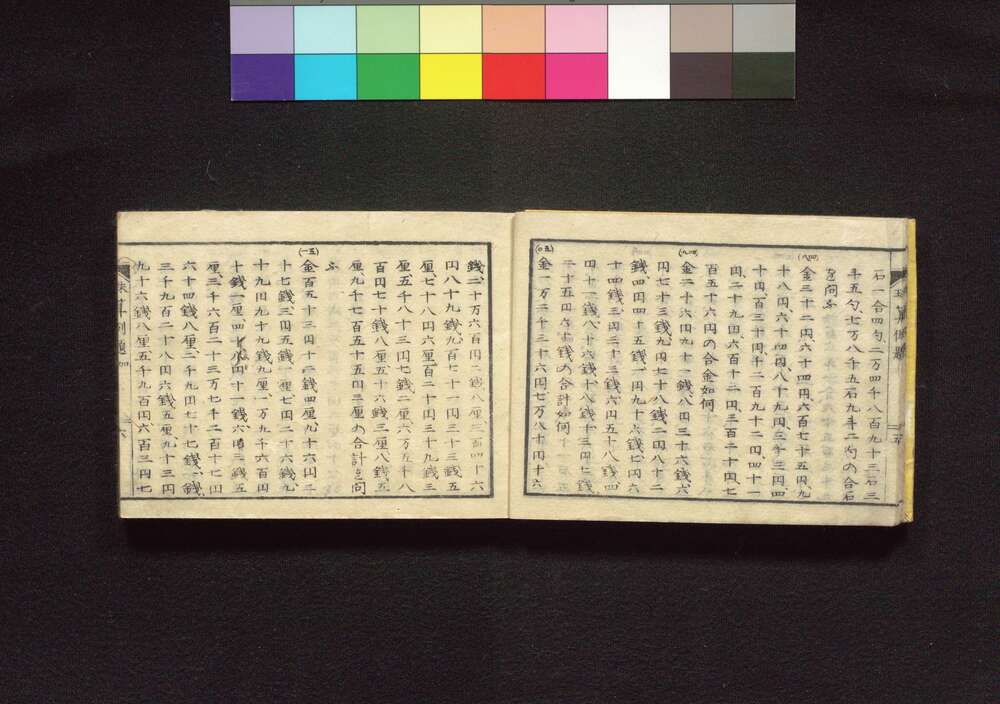 石一合四勺、二万四千八百九十三石三
斗五勺、七万八千五石九斗二勺の合石
を問ふ
(四八)
金三十二円、六十四円、六百七十五円、九
十八円、六十四円、八十九円、三千三円、四
十四円、百三十円、千二百九十二円、四十一
円、二十九円、六百十二円、三百二十円、七
百五十六円の合金如何
(四九)
金二十六円九十一銭、八円三十六銭、六
円七十三銭、五円九十八銭、二円八十二
銭、四円四十五銭、一円九十六銭、七円六
十四銭、三円二十三銭、六円五十八銭、四
円十一銭、八十六銭、十八銭、十三円七銭、
二十五円六十銭の合計如何
(五十)
金一万二千三十六円、七万八十円十六
銭、二十万六百円二銭八厘、三百四十六
円八十九銭、九百七十一円三十三銭五
厘、七十八円六厘、百二十円三十九銭三
厘、五千八十三円七銭二厘、六万五千八
百円七十銭八厘、五十六銭三厘、八銭五
厘、九千七百五十五円三厘の合計を問
ふ
(五一)
金百五十三円十二銭四厘、九十六円三
十七銭、三円五銭一厘、七円二十六銭、九
十九円九十九銭九厘、一万九千六百円
十銭一厘、四十八円十一銭、六円三銭五
厘、三千六百二十三万七千二百十七円
六十四銭八厘、二千九円七十七銭、一銭、
三千九百二十八円六銭五厘、九十三円
九十六銭八厘、五千九百円、六百三円七